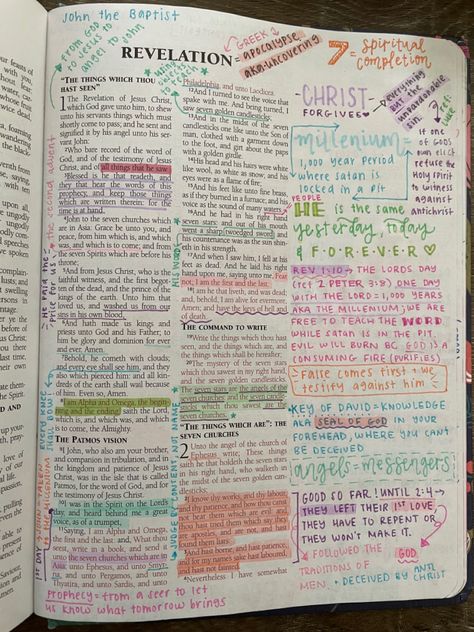 John the Baptist
from God
to Jesus to
angel to
John
REVELATION
= GREEK
apocalypse,
aka: uncovering
7 = spiritual
completion
"THE THINGS WHICH THOU
HAST SEEN"
1 The Revelation of Jesus Christ,
which God gave unto him, to show
unto his servants things which must
shortly come to pass; and he sent and
signified it by his angel unto his ser-
vant John:
2Who bare record of the word
of God, and of the testimony of Jesus
Christ, and of all things that he saw.
3Blessed is he that readeth, and
they that hear the words of this
prophecy, and keep those things
which are written therein: for the
time is at hand.
4John to the seven churches which
are in Asia: Grace be unto you, and
peace, from him which is, and which
was, and which is to come; and from
the seven Spirits which are before his
throne;
5And from Jesus Christ, who is the
faithful witness, and the first begot-
ten of the dead, and the prince of the
kings of the earth. Unto him that
loved us, and washed us from our
sins in his own blood,
6And hath made us kings and
priests unto God and his Father; to
him be glory and dominion for ever
and ever. Amen.
7Behold, he cometh with clouds;
and every eye shall see him, and they
also which pierced him: and all kin-
dreds of the earth shall wail because
of him. Even so, Amen.
8I am Alpha and Omega, the begin-
ning and the ending, saith the Lord,
which is, and which was, and which
is to come, the Almighty.
THE PATMOS VISION
9I John, who also am your brother,
and companion in tribulation, and in
the kingdom and patience of Jesus
Christ, was in the isle that is called
Patmos, for the word of God, and for
the testimony of Jesus Christ.
10I was in the Spirit on the Lord's
day, and heard behind me a great
voice, as of a trumpet,
11Saying, I am Alpha and Omega,
the first and the last: and, What thou
seest, write in a book, and send it
unto the seven churches which are in
Asia; unto Ephesus, and unto Smyr-
na, and unto Pergamos, and unto
Thyatira, and unto Sardis, and unto
Philadelphia, and unto Laodicea.
12And I turned to see the voice that
spake with me. And being turned, I
saw seven golden candlesticks;
13And in the midst of the seven
candlesticks one like unto the Son of
man, clothed with a garment down
to the foot, and girt about the paps
with a golden girdle.
14His head and his hairs were white
like wool, as white as snow; and his
eyes were as a flame of fire;
15And his feet like unto fine brass,
as if they burned in a furnace; and his
voice as the sound of many waters.
16And he had in his right hand
seven stars: and out of his mouth
went a sharp twoedged sword: and
his countenance was as the sun shin-
eth in his strength.
17And when I saw him, I fell at his
feet as dead. And he laid his right
hand upon me, saying unto me, Fear
not; I am the first and the last:
18I am he that liveth, and was dead;
and, behold, I am alive for evermore,
Amen; and have the keys of hell and
of death.
THE COMMAND TO WRITE
19Write the things which thou hast
seen, and the things which are, and the
things which shall be hereafter;
20The mystery of the seven stars
which thou sawest in my right hand,
and the seven golden candlesticks.
The seven stars are the angels of the
seven churches: and the seven candle-
sticks which thou sawest are the
seven churches.
"THE THINGS WHICH ARE": THE
SEVEN CHURCHES
2 Unto the angel of the church of
Ephesus write; These things
saith he that holdeth the seven stars
in his right hand, who walketh in
the midst of the seven golden
candlesticks;
2I know thy works, and thy labour,
and thy patience, and how thou canst
not bear them which are evil: and
thou hast tried them which say they
are apostles, and are not, and hast
found them liars:
3And hast borne, and hast patience,
and for my name's sake hast laboured,
and hast not fainted.
4Nevertheless I have somewhat
the second advent
HIS WORD
JUDGE BY CONTENT NOT NAME
1ST DAY
prophecy → from a seer to let
us know what tomorrow brings
CHRIST
FORGIVES
everything
but the
unpardonable
sin
millenium
1,000 year period
where satan is
locked in a pit
if one
of GODS
elect
refuse the
Holy spirit
to witness
against
antichrist
PEOPLE
HE is the same
yesterday, today
& FOREVER
REV 1:10 → THE LORDS DAY
(ref 2 PETER 3:8) ONE DAY
WITH THE LORD = 1,000 YEARS
AKA THE MILLENIUM; WE ARE
FREE TO TEACH THE WORD
WHILE SATAN IS IN THE PIT.
EVIL WILL BURN BC GOD IS A
CONSUMING FIRE (PURIFIES)
False comes first & we
testify against him
KEY OF DAVID = KNOWLEDGE
AKA SEAL OF GOD IN YOUR
FOREHEAD, WHERE YOU CAN'T
BE DECEIVED
angels = messengers
GOOD SO FAR! UNTIL 2:4 →
THEY LEFT THEIR 1ST LOVE,
THEY HAVE TO REPENT OR
THEY WON'T MAKE IT.
GOD
FOLLOWED THE
TRADITIONS OF
MEN
+ DECEIVED BY ANTI
CHRIST